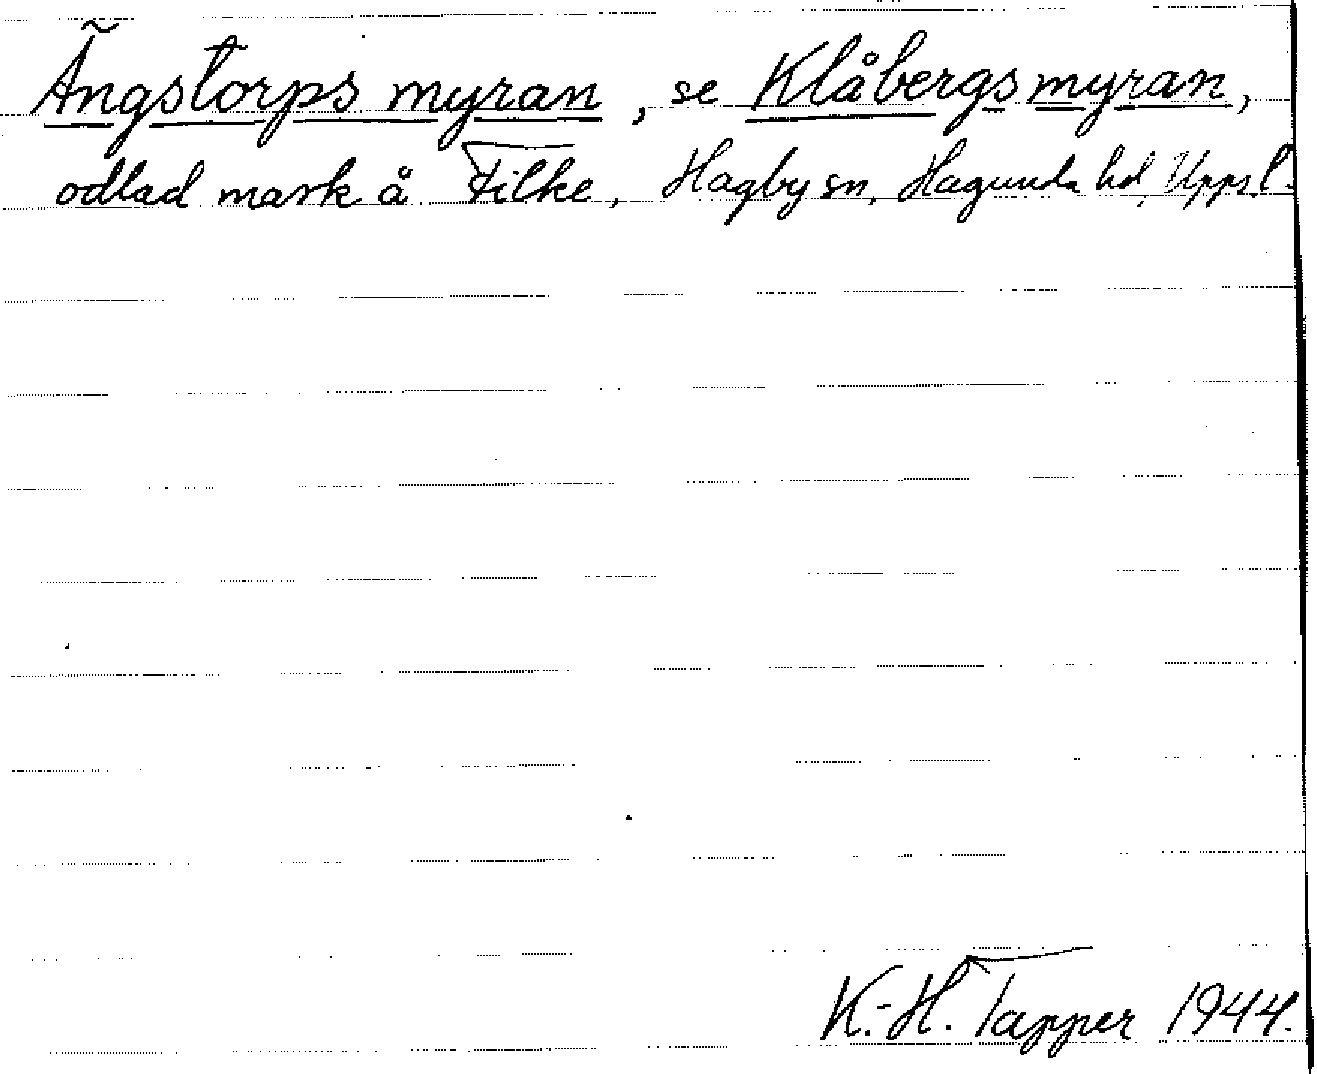 Ängstorps myran, se Klåbergs myran,
odlad mark å Filke, Hagby sn, Hagunda hd, Uppsl.
K.-H. Tapper 1944.